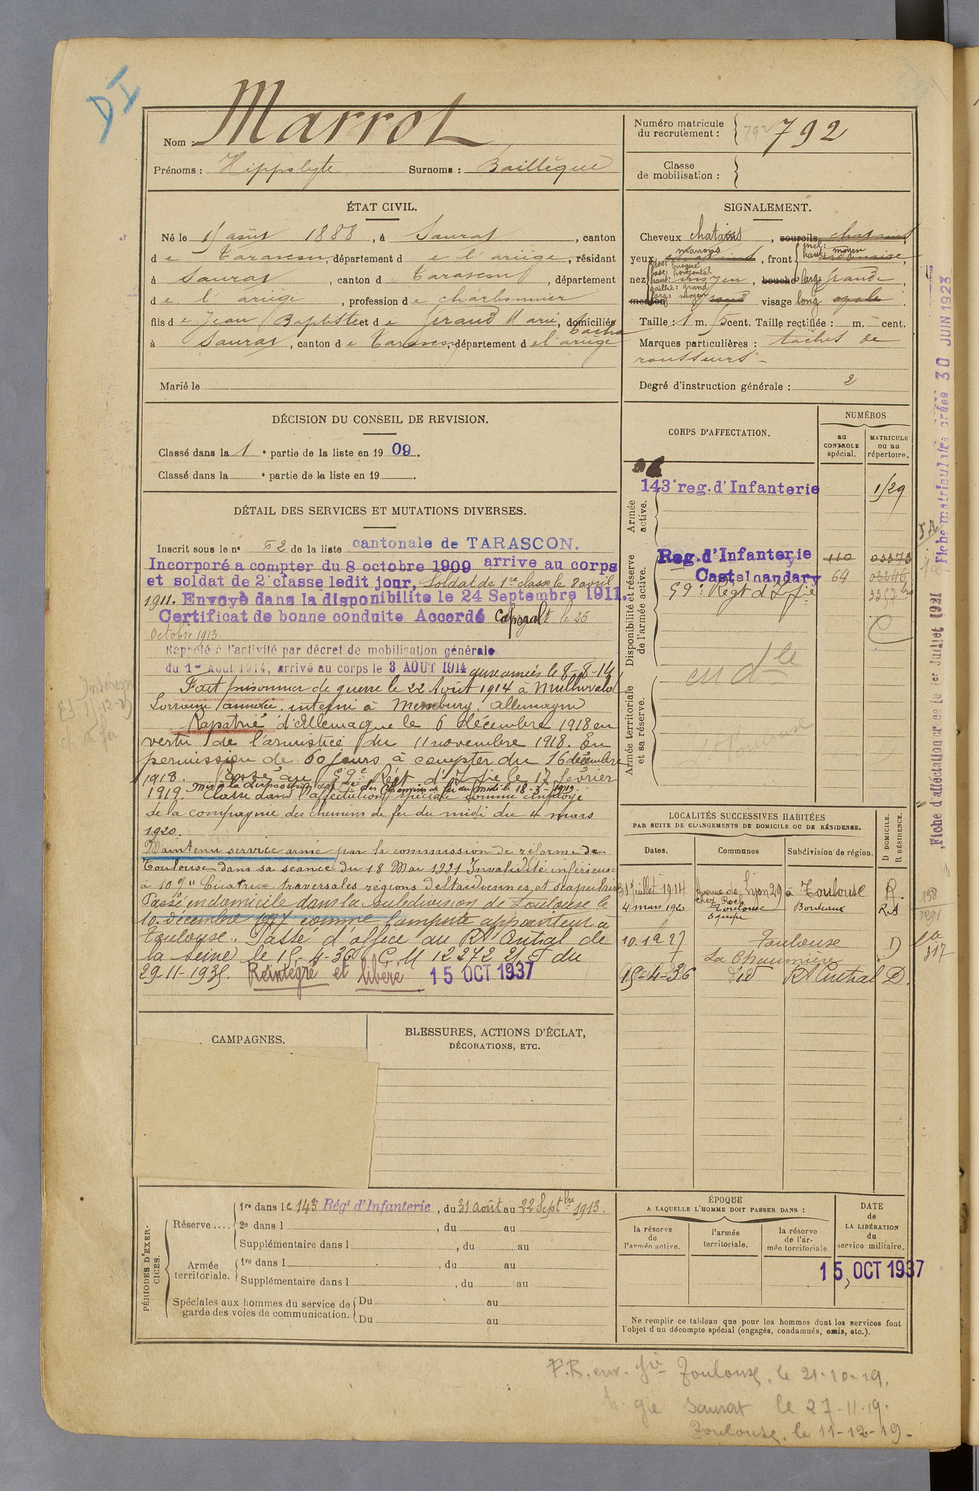 DI
Nom : Marrot
Prénoms : Hippolyte Surnoms : Baillèque
Numéro matricule du recrutement : 792 792
Classe de mobilisation :
ÉTAT CIVIL.
Né le 1 août 1888, à Saurat, canton
de Tarascon, département de l'ariège, résidant
à Saurat, canton de Tarascon, département
de l'ariège, profession de charbonnier
fils de Jean Baptiste et de Marie, domiciliés
à Saurat, canton de Tarascon, département de l'ariège
Marié le
SIGNALEMENT.
Cheveux chatains, sourcils chatains
yeux, front
nez moyen, bouche grande
menton rond visage long ovale
Taille : 1 m. cent. Taille rectifiée : m. cent.
Marques particulières : taches de
rousseurs
Degré d'instruction générale : 2
DÉCISION DU CONSEIL DE REVISION.
Classé dans la 1e partie de la liste en 1909.
Classé dans la e partie de la liste en 19 .
DÉTAIL DES SERVICES ET MUTATIONS DIVERSES.
Inscrit sous le n° 62 de la liste cantonale de TARASCON.
Incorporé a compter du 8 octobre 1909 arrive au corps
et soldat de 2e classe ledit jour, Soldat de 1re classe le 8 avril
1911. Envoyé dans la disponibilité le 24 Septembre 1911.
Certificat de bonne conduite Accordé Caporal le 25
Octobre 1913
Rappelé à l'activité par décret de mobilisation générale
du 1er Août 1914, arrivé au corps le 3 AOUT 1914 aux armées le 8-8-14
Fait prisonnier de guerre le 22 Août 1914 à
Lorraine annexée, interné à Allemagne
Rapatrié d'Allemagne le 6 décembre 1918 en
vertu de l'armistice du 11 novembre 1918. En
permission de 60 jours à compter du 16 décembre
1918. Passé au 59e Régt d'Infie le 17 février
1919. Mis à la disposition des Chemins de fer du Midi le 18-3-1919.
Classé dans l'affectation spéciale comme employé
de la compagnie des chemins de fer du midi du 4 mars
1920.
Maintenu service armé par la commission de réforme de
Toulouse dans sa séance du 18 Mai 1921 Invalidité inférieure
à 10 % "Cicatrice transversales régions deltoidiennes et scapulaire
Passé en domicile dans la subdivision de Toulouse le
10 décembre 1927 comme
Toulouse. Passé d'office au Rt Central de
la Seine le 15-4-36 C.M 12272 du
29-11-1935 Réintégré et libéré 15 OCT 1937
CORPS D'AFFECTATION.
NUMÉROS
au CONTROLE spécial.
MATRICULE ou au répertoire.
Armée active.
143e reg. d'Infanterie 1129
Disponibilité et réserve de l'armée active.
Reg. d'Infanterie 110
Castelnaudary 64
59e Régt d'Infie
Armée territoriale et sa réserve.
LOCALITÉS SUCCESSIVES HABITÉES
PAR SUITE DE CHANGEMENTS DE DOMICILE OU DE RÉSIDENCE.
Dates. Communes Subdivision de région. D DOMICILE. R RÉSIDENCE.
31 juillet 1914 Avenue de Lyon 29 à Toulouse R.
4 mars 1920 Toulouse Bordeaux R.
10.12 27 Toulouse D
La Chaumière
15-4-36 Rt Central D.
CAMPAGNES.
BLESSURES, ACTIONS D'ÉCLAT,
DÉCORATIONS, ETC.
PÉRIODES D'EXERCICES.
Réserve....
1re dans le 143e Régt d'Infanterie, du 31 août au 22 Septbre 1913.
2e dans l , du au
Supplémentaire dans l , du au
Armée territoriale.
1re dans l , du au
Supplémentaire dans l , du au
Spéciales aux hommes du service de garde des voies de communication.
Du au
Du au
ÉPOQUE
A LAQUELLE L'HOMME DOIT PASSER DANS :
la réserve de l'armée active.
l'armée territoriale.
la réserve de l'armée territoriale.
DATE DE LA LIBÉRATION du service militaire.
15 OCT 1937
Ne remplir ce tableau que pour les hommes dont les services font
l'objet d'un décompte spécial (engagés, condamnés, omis, etc.).
Fiche d'affectation créée le 1er Juillet 1921 Fiche matriculaire créée 30 JUIN 1923
P.R. env. Gie Toulouse, le 21-10-19.
gie Saurat le 27-11-19.
Toulouse, le 11-12-19.